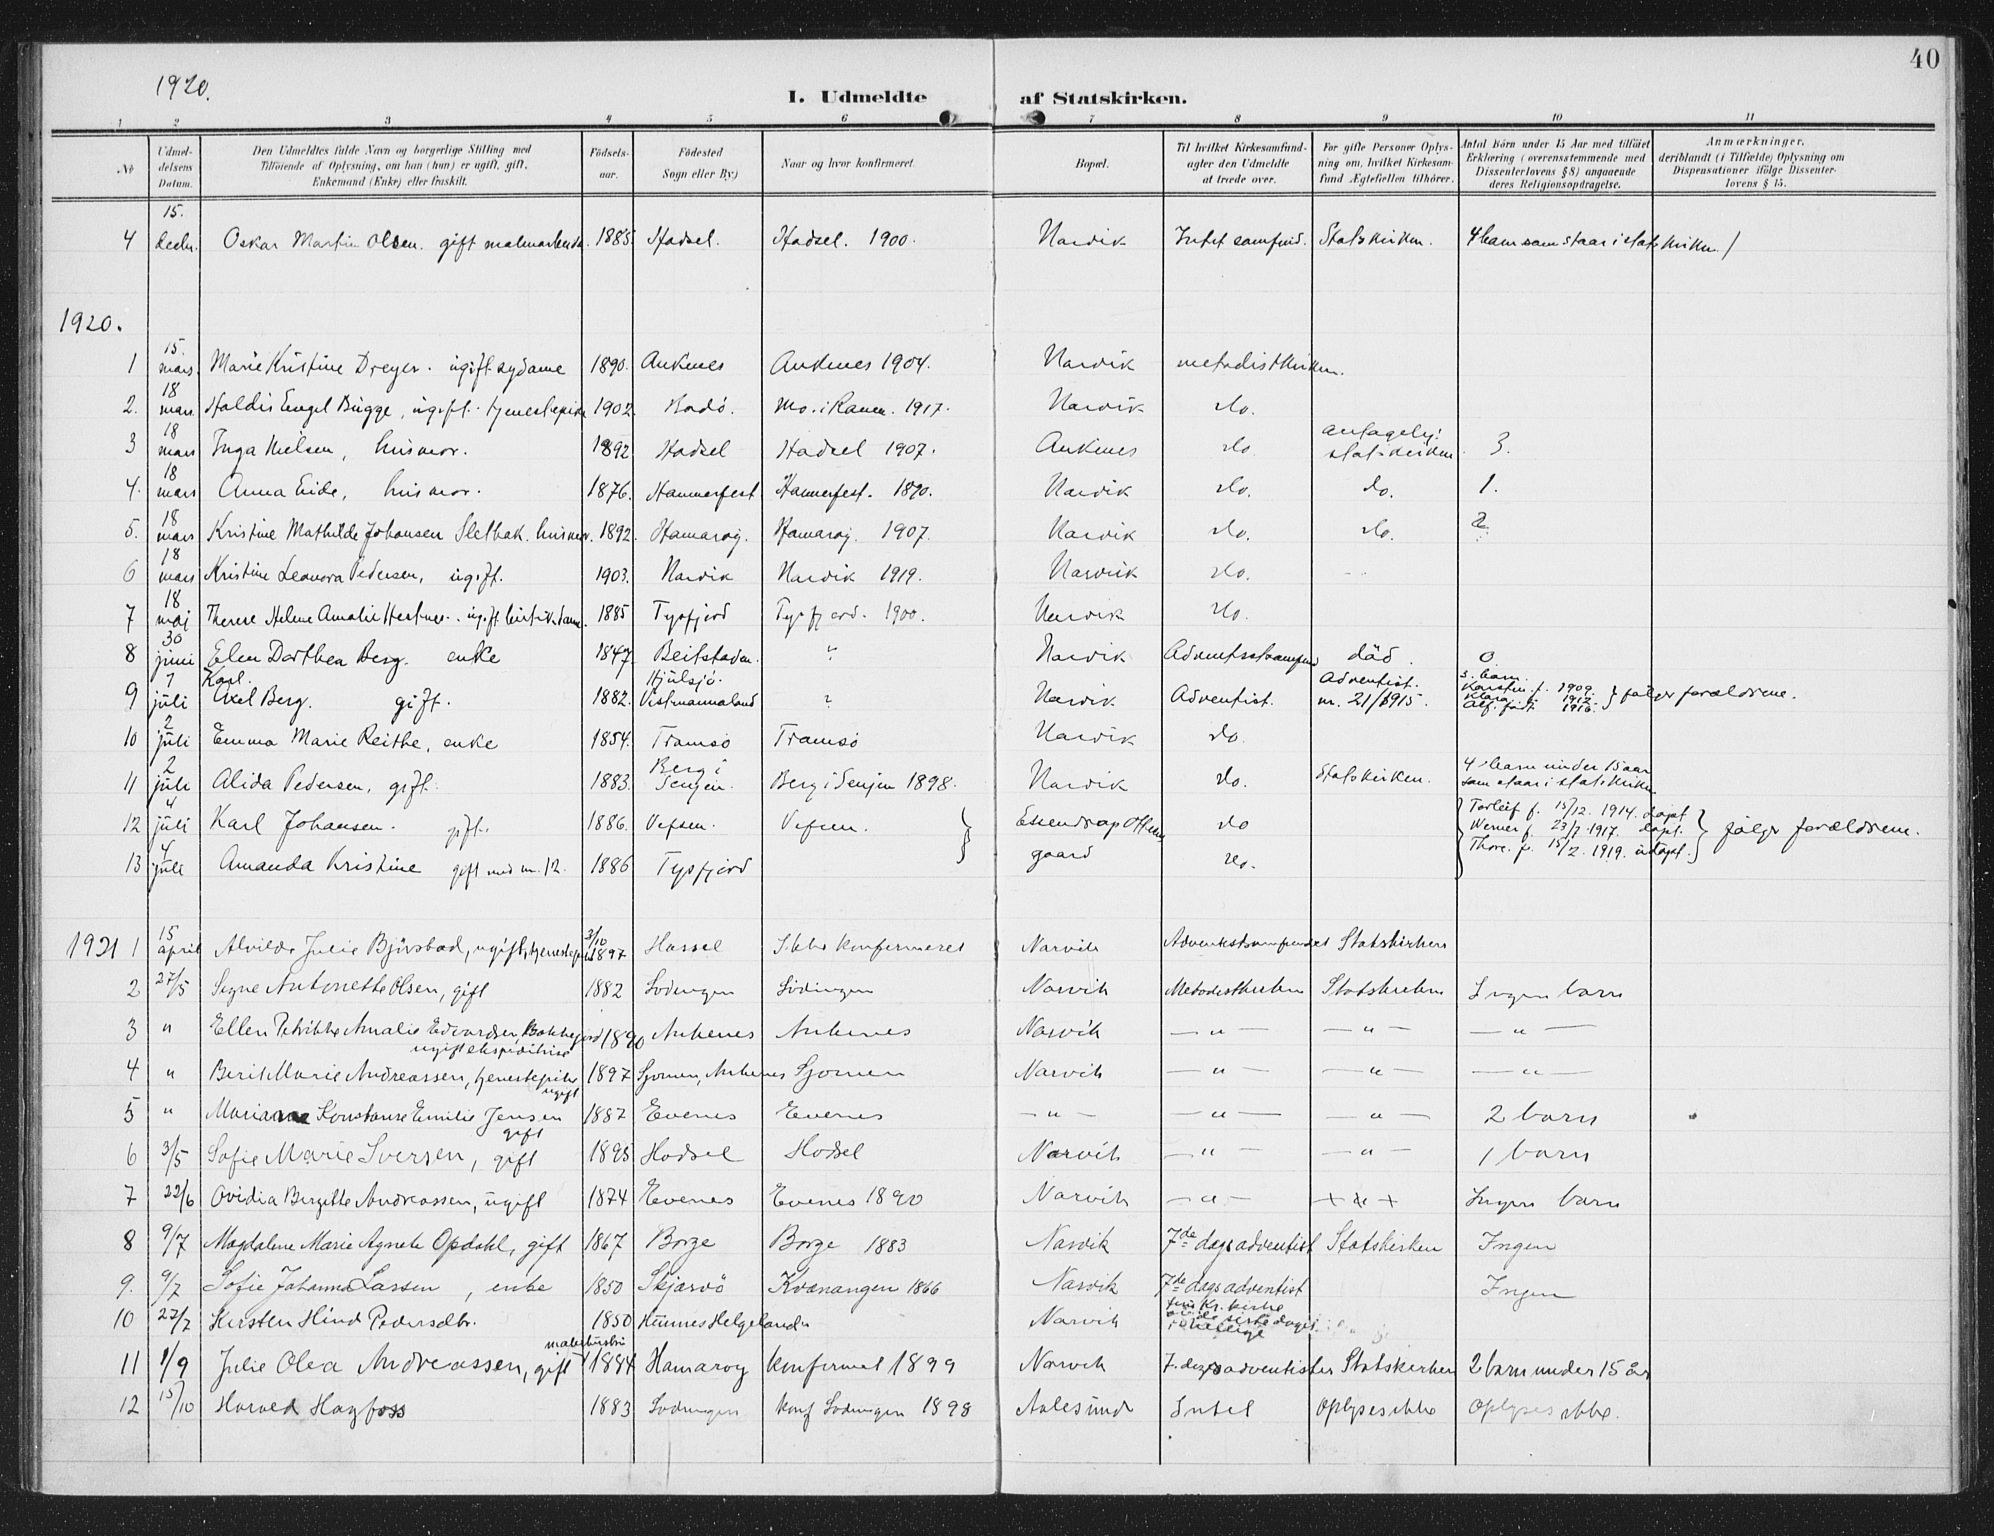 40
1920.
I. Udmeldte af Statskirken.
1 2 3 4 5 6 7 8 9 10 11
No. | Udmeldelsens Datum. | Den Udmeldtes fulde Navn og borgerlige Stilling med Tilföiende af Oplysning, om han (hun) er ugift, gift, Enkemand (Enke) eller fraskilt. | Födselsaar. | Födested Sogn eller By.) | Naar og hvor konfirmeret. | Bopæl. | Til hvilket Kirkesamfund agter den Udmeldte at træde over. | For gifte Personer Oplysning om, hvilket Kirkesamfund Ægtefællen tilhörer. | Antal Börn under 15 Aar med tilföiet Erklæring (overensstemmende med Dissenterlovens § 8) angaaende deres Religionsopdragelse. | Anmærkninger, deriblandt (i Tilfælde) Oplysning om Dispensationer ifölge Dissenterlovens § 15.
4 15. decbr. Oskar Martin Olsen. gift malmarbeider 1885. Hadsel. Hadsel. 1900. Narvik Intet samfund. Statskirken. 4 barn som staar i statskirken.
1920.
1 15. mars. Marie Kristine Dreyer. ugift sydame 1890. Ankenes Ankenes 1904. Narvik metodistkirken.
2. 18 mars Haldis Engel Bugge, ugift. tjenestepike 1902. Bodö. Mo i Ranen. 1917. Narvik do.
3 18 mars Inga Nielsen, husmor. 1892 Hadsel Hadsel 1907. Ankenes do. antagelig: statskirken. 3.
4. 18 mars Anna Eide, husmor. 1876. Hammerfest Hammerfest. 1890. Narvik do. do. 1.
5. 18 mars Kristine Mathilde Johansen Sletbak. husmor. 1892. Hamarøy. Hamarøy. 1907. Narvik do. do. 2.
6 18 mars Kristine Leonora Pedersen, ugift. 1903. Narvik Narvik 1919. Narvik do.
7 18 maj Therese Helene Amalie Hertner. ugift 1885 Tysfjord Tysfjord. 1900. Narvik do.
8 30 juni Elen Dorthea Berg. enke 1847. Beitstaden. ? Narvik Adventsamfund död. 0
9 1 juli Karl Axel Berg. gift. 1882. Hjulsjö. Vestmannaland ? Narvik Adventist. Adventist. nr. 21/1915. 3. barn. Karsten f. 1909. Klara f. 1912. Alf. födt 1916. } fölger forældrene.
10 2 juli Emma Marie Reithe, enke 1854. Tromsö Tromsö Narvik do.
11 2 juli Alida Pedersen, gift. 1883. Berg i Senjen. Berg i Senjen 1898. Narvik do. Statskirken. 4 barn under 15 aar som staar i statskirken
12 4 juli Karl Johansen. gift. 1886. Vefsen. Vefsen. do Torleif f. 15/12. 1914. döpt Werner f. 23/7. 1917. döpt. Thore. f. 15/2. 1919. udöpt. } fölger forældrene.
13 4 juli Amanda Kristine gift med nr. 12. 1886 Tysfjord gaard do.
1921 1 15 april Alvilde Julie Björsbad, ugift, tjenestepike 3/10 1897 Hassel Ikke konfirmeret Narvik Adventistsamfundet Statskirken
2 27/5 Signe Antonette Olsen, gift 1882 Lödingen Lödingen Narvik Metodistkirken Statskirken Ingen barn
3 " Ellen Petrikke Amalie Edvardsen, Bakkejord ugift ekspeditrise 1890 Ankenes Ankenes Narvik — " — — " — — " —
4 " Berit Marie Andreassen, tjenestepike ugift 1897 Sjomen, Ankenes Sjomen Narvik — " — — " — — " —
5 " Mariane Konstanse Emilie Jensen gift 1887 Evenes Evenes — " — — " — — " — 2 barn
6 3/5 Sofie Marie Iversen, gift 1895 Hadsel Hadsel Narvik — " — — " — 1 barn
7 22/6 Ovidia Bergitte Andreassen, ugift 1874 Evenes Evenes 1890 Narvik — " — Ingen barn
8 9/7 Magdalene Marie Agnete Opdahl, gift 1867 Borge Borge 1883 Narvik 7de dags adventist Statskirken Ingen
9. 9/7 Sofie Johanna Larssen, enke 1850 Skjærvö Kvænangen 1866 Narvik 7de dags adventist Ingen
10 27/7 Kirsten Hind Pedersdtr. 1850 Helgeland Narvik Jesu Kr. kirke av de siste dages hellige
11 1/9 Julie Olea Andreassen, gift 1884 Hamarøy konfirmert 1899 Narvik 7. dags adventister Statskirken 2 barn under 15 år
12 15/10 Harald Hagfoss 1883 Lödingen konf Lödingen 1898 Aalesund Intet Oplyses ikke Oplyses ikke.